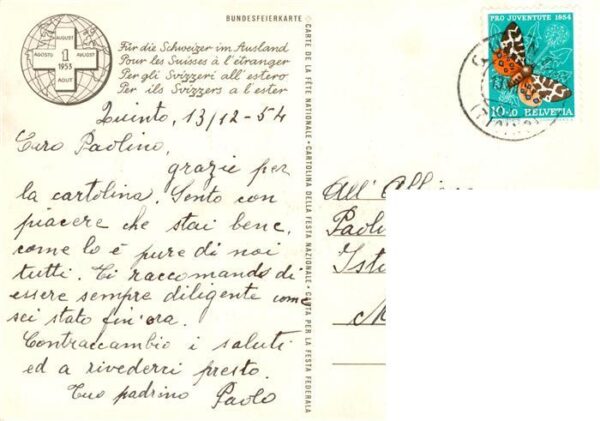 BUNDESFEIERKARTE
AUGUST
AGOSTO 1 AVUOST
1953
AOUT
Für die Schweizer im Ausland
Pour les Suisses à l'étranger
Per gli Svizzeri all'estero
Per ils Svizzers a l'ester
Quinto, 13/12-54
Caro Paolino,
grazie per
la cartolina. Sento con
piacere che stai bene,
come lo è pure di noi
tutti. Ti raccomando di
essere sempre diligente come
sei stato fin'ora.
Contraccambio i saluti
ed a rivederci presto.
Tuo padrino Paolo
CARTE DE LA FÊTE NATIONALE • CARTOLINA DELLA FESTA NAZIONALE • CARTA PER LA FESTA FEDERALA
PRO JUVENTUTE 1954
10+10 HELVETIA
All'
Paol
Isti
M